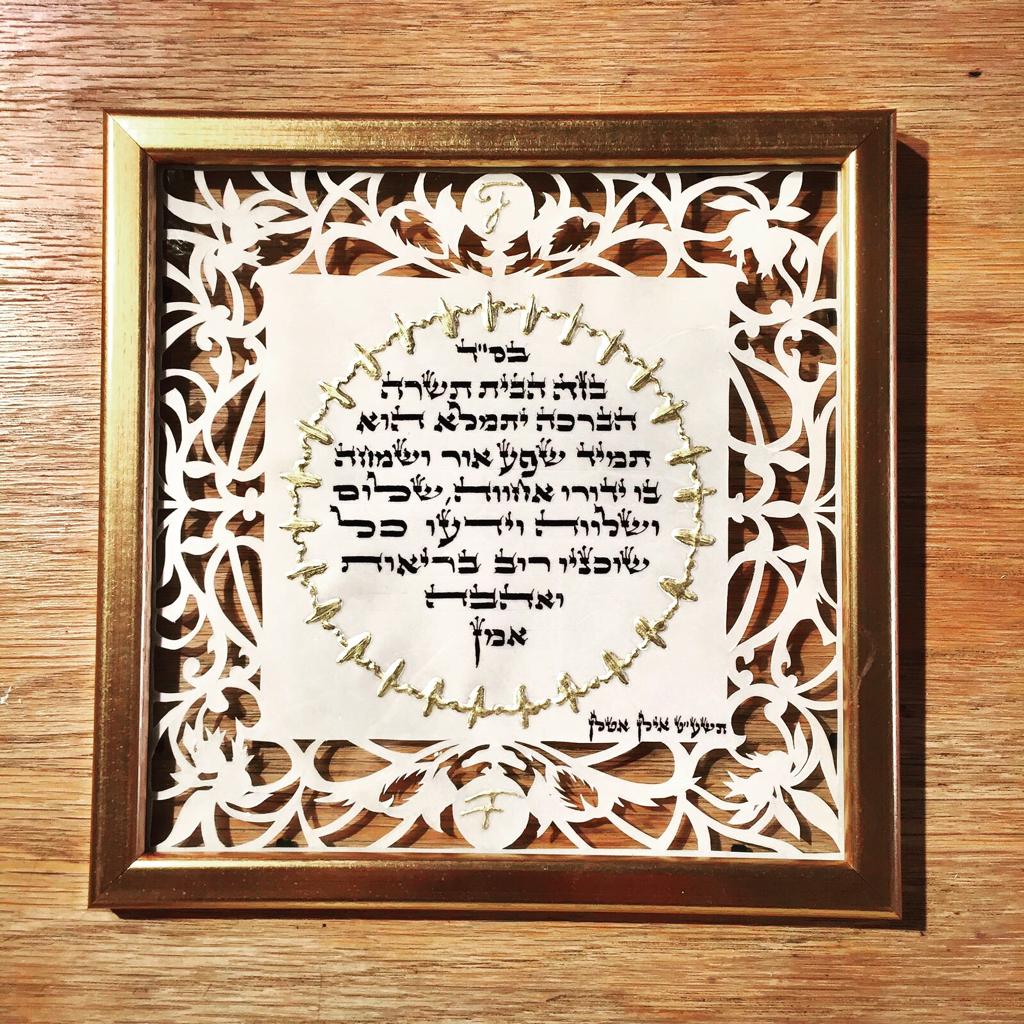 F
בס"ד
בזה הבית תשרה
הברכה יתמלא הוא
תמיד שפע אור ושמחה
בו ידורו אחווה, שלום
ושלווה וידעו כל
שוכניו רוב בריאות
ואהבה
אמן
תשע"ט אילן אטלן
F